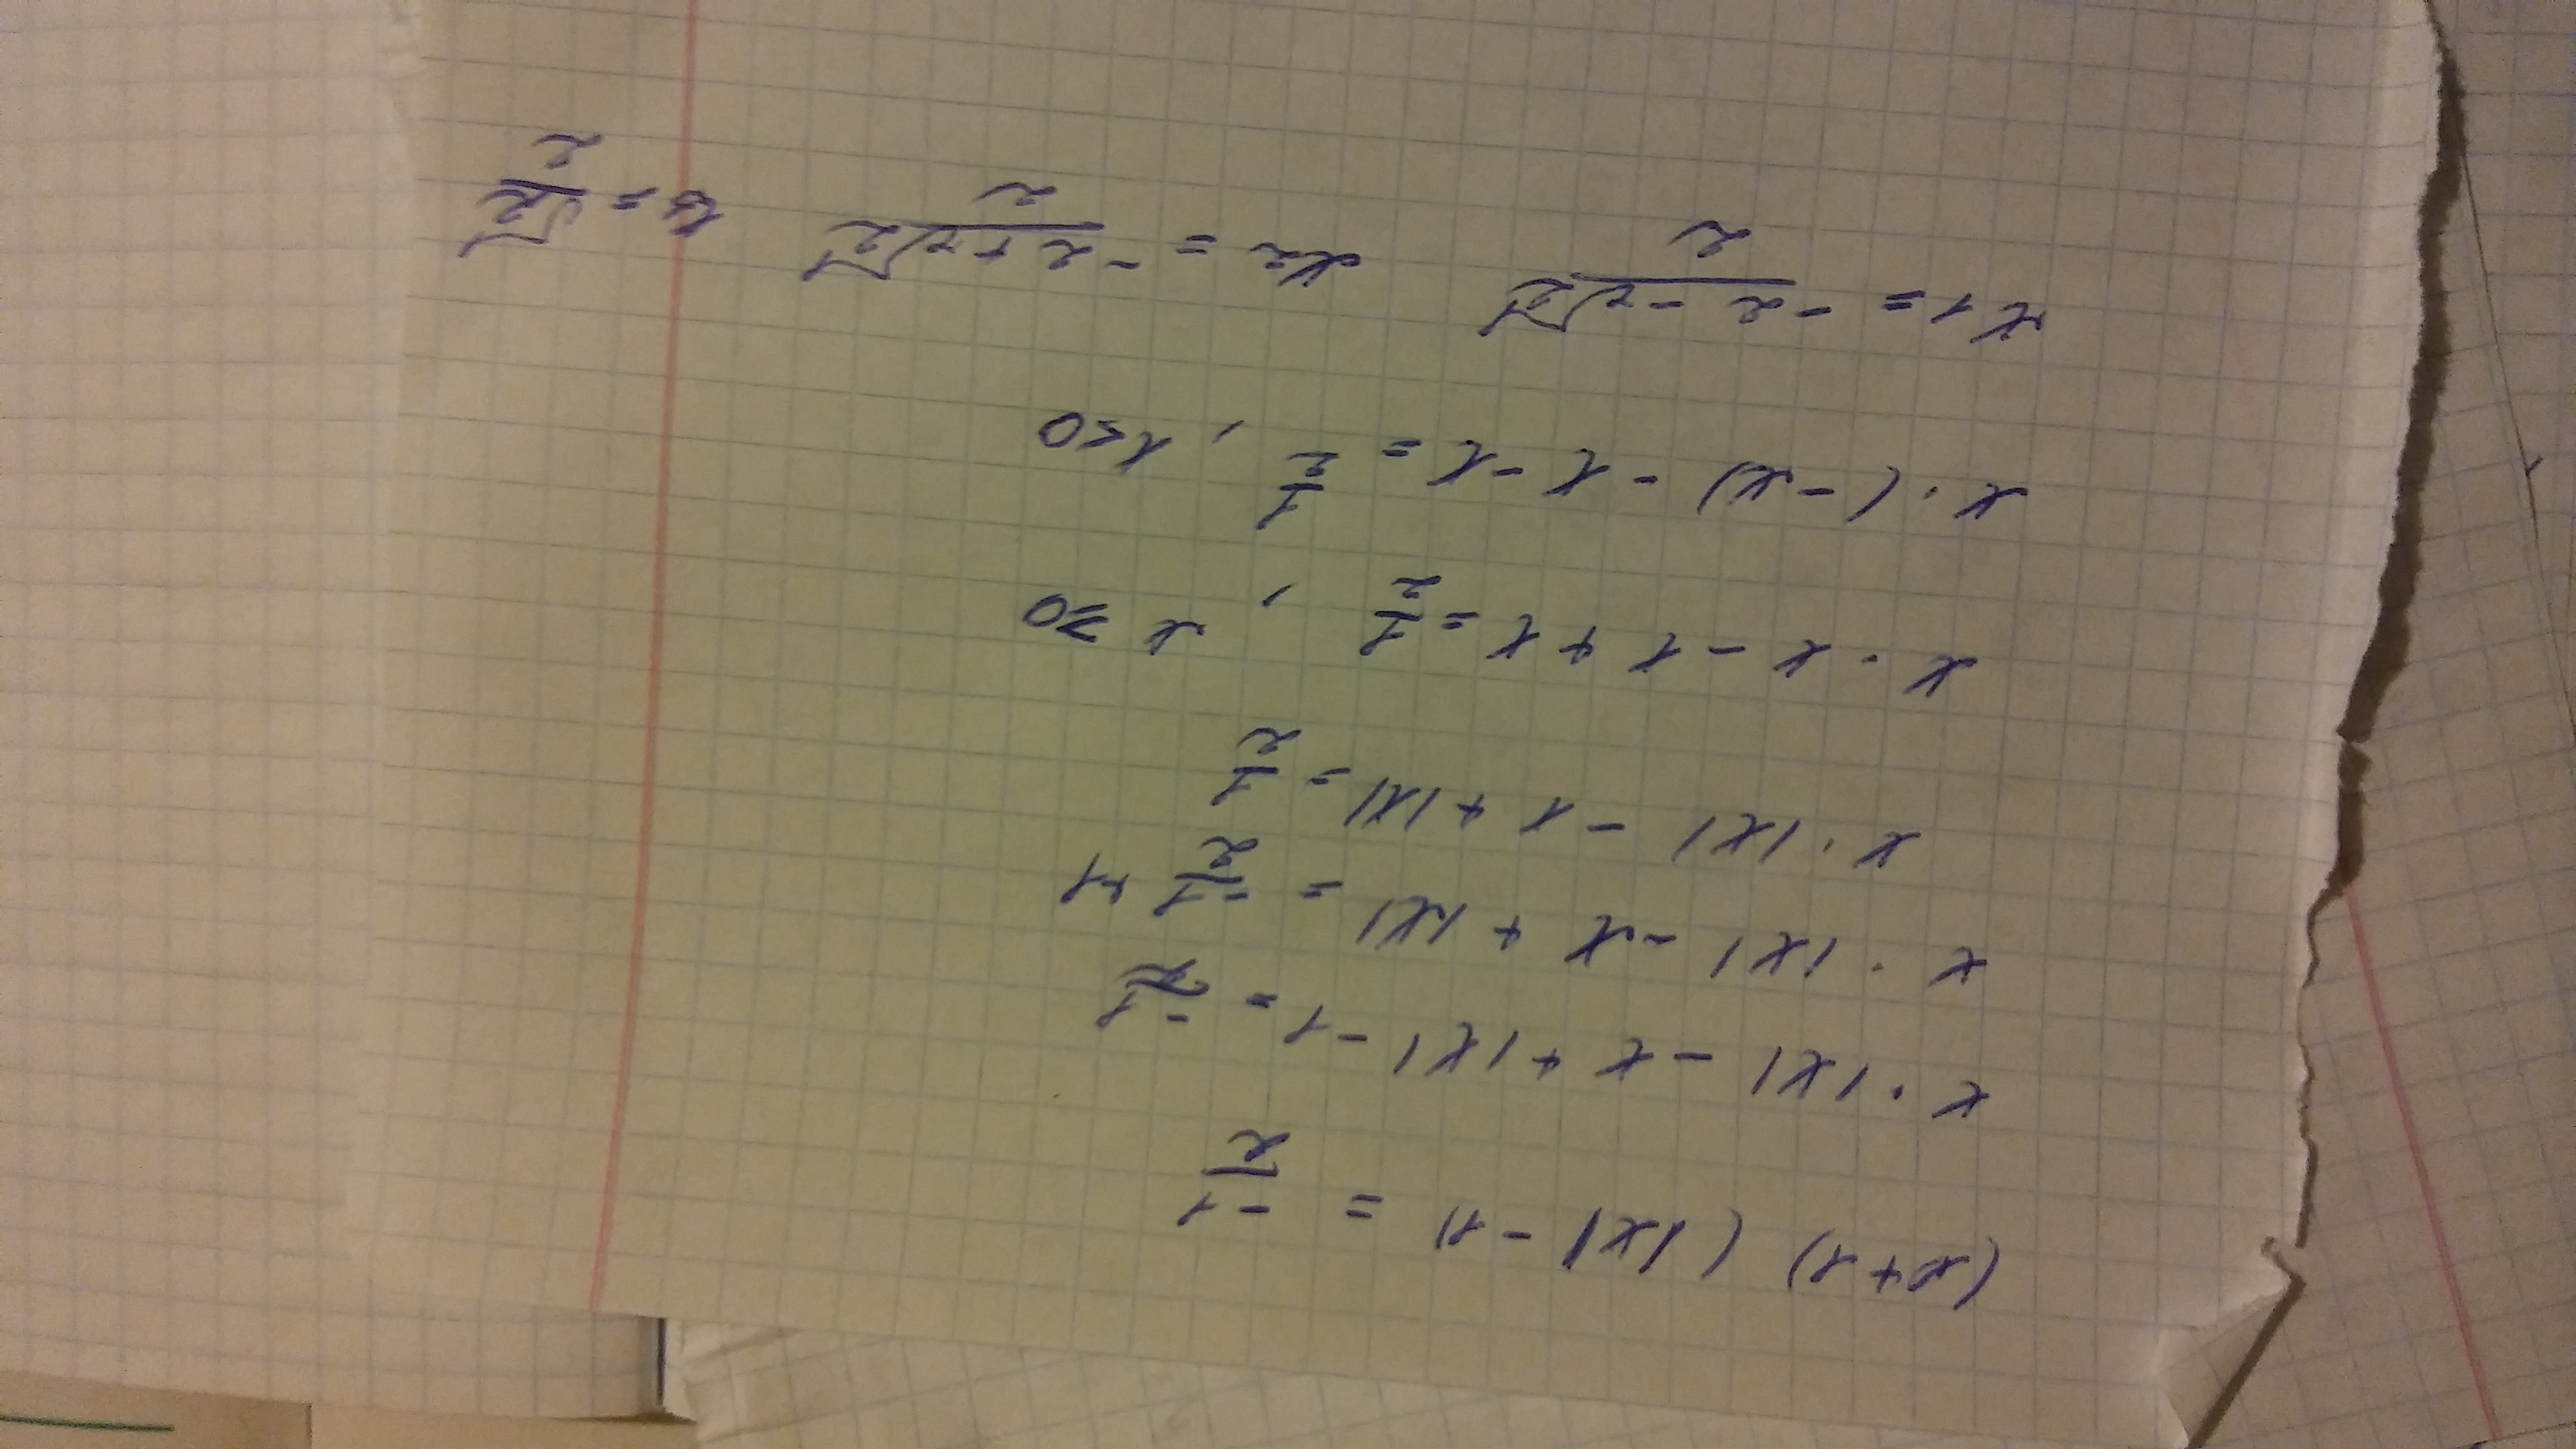 (x+1) (|x| -1) = -1/2
x · |x| - x + |x| - 1 = -1/2
x · |x| - x + |x| = -1/2 +1
x · |x| - x + |x| = 1/2
x · x - x + x = 1/2 , x ≥0
x · (-x) - x - x = 1/2 , x<0
x1 = -2-√2/2 x2 = -2+√2/2 x = √2/2